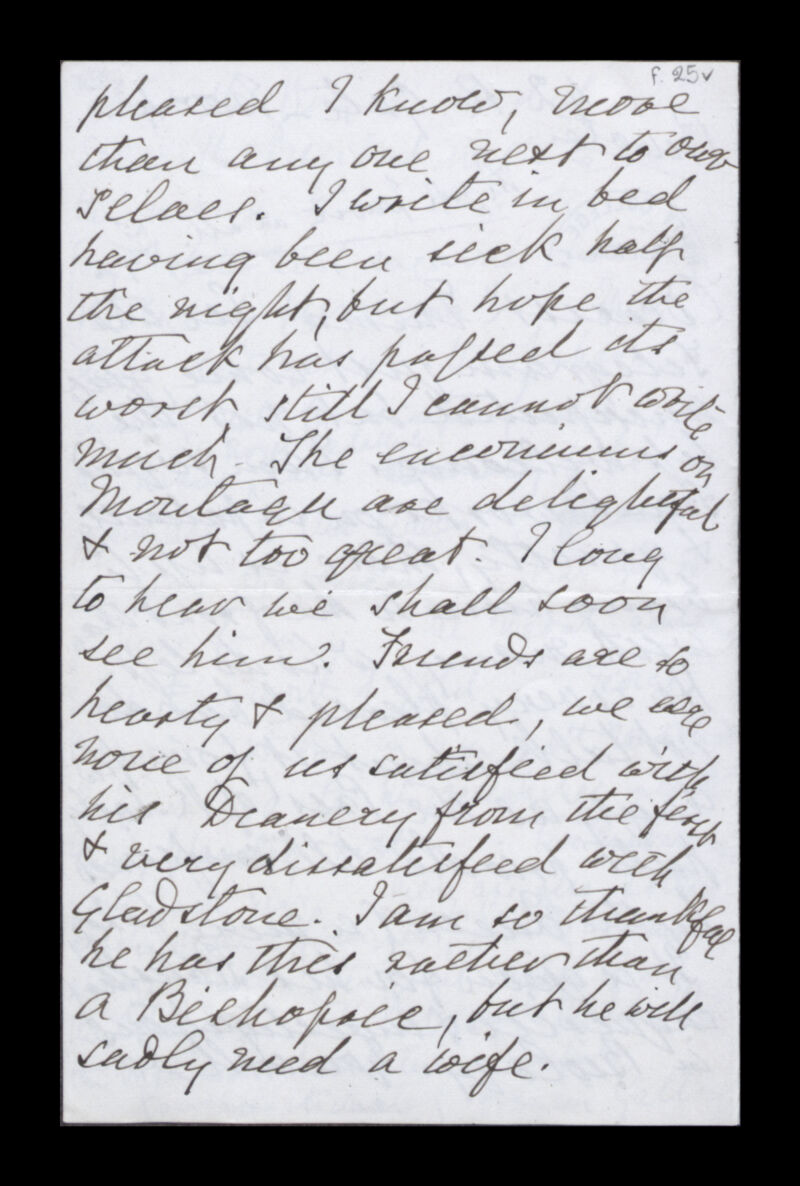 f. 25v
pleased I know, more
than any one next to our
selves. I write in bed
having been sick half
the night, but hope the
attack has passed its
worst, still I cannot write
much. The encomiums on
Montagu are delightful
& not too great. I long
to hear we shall soon
see him. Friends are so
hearty & pleased, we are
none of us satisfied with
his Deanery from the first
& very dissatisfied with
Gladstone. I am so thankful
he has this rather than
a Bishopric, but he will
sadly need a wife.